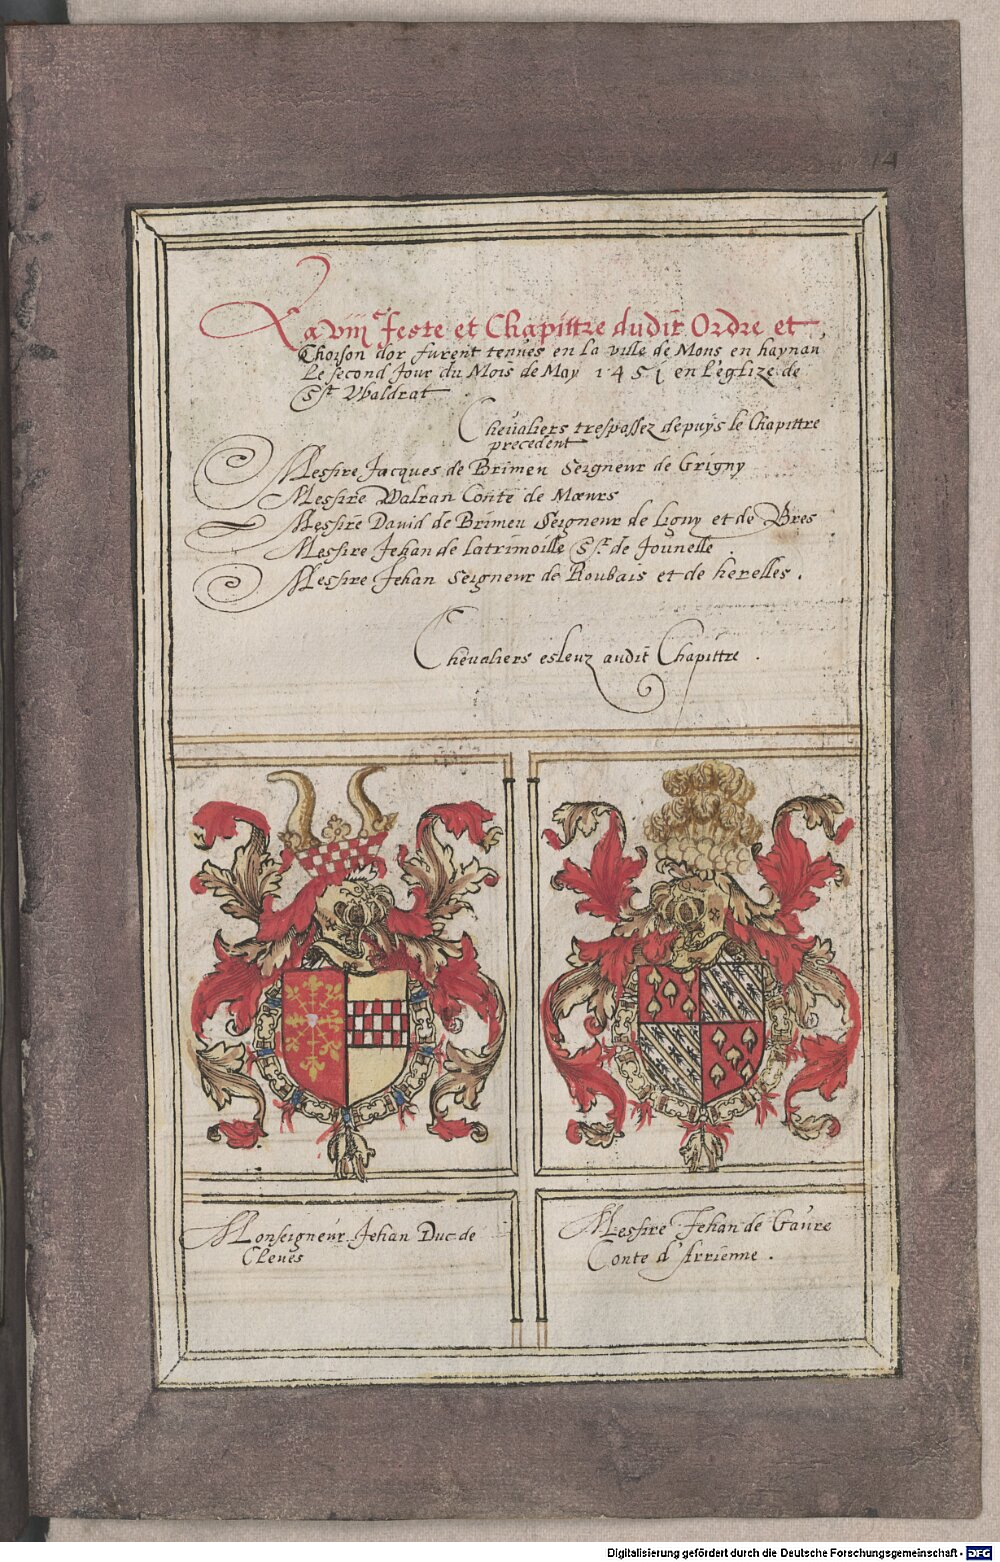 14
La viije feste et Chapittre dudit Ordre et
Thoison dor furent tenues en la ville de Mons en haynau
Le second Jour du Mois de May 1451 en L'eglize de
Ste Waldrat
Chevaliers trespassez depuys le Chapittre
precedent
Messire Jacques de Brimeu Seigneur de Grigny
Messire Walran Conte de Mœurs
Messire David de Brimeu Seigneur de Ligny et de
Messire Jehan de Latrimoille Sr. de Jounelle
Messire Jehan Seigneur de Roubais et de herelles.
Chevaliers esleuz audit Chapittre.
Monseigneur Jehan Duc de
Cleves
Messire Jehan de Gavre
Conte d'Arrienne.
Digitalisierung gefördert durch die Deutsche Forschungsgemeinschaft - DFG